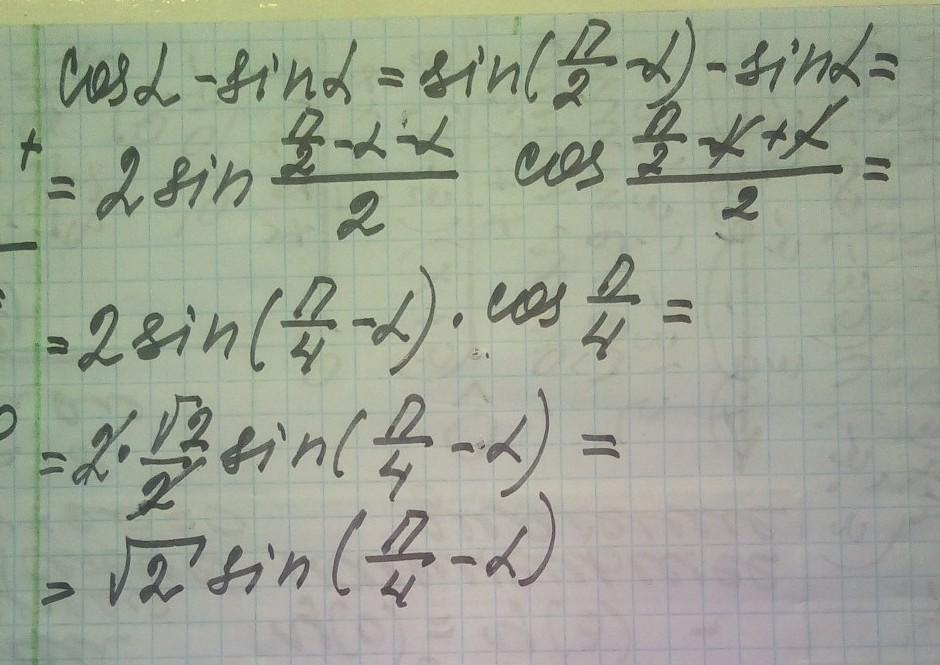 cosα - sinα = sin(π/2 - α) - sinα =
= 2 sin (π/2 - α - α)/2 cos (π/2 - α + α)/2 =
= 2 sin(π/4 - α) · cos π/4 =
= 2 · √2/2 sin(π/4 - α) =
= √2 sin(π/4 - α)